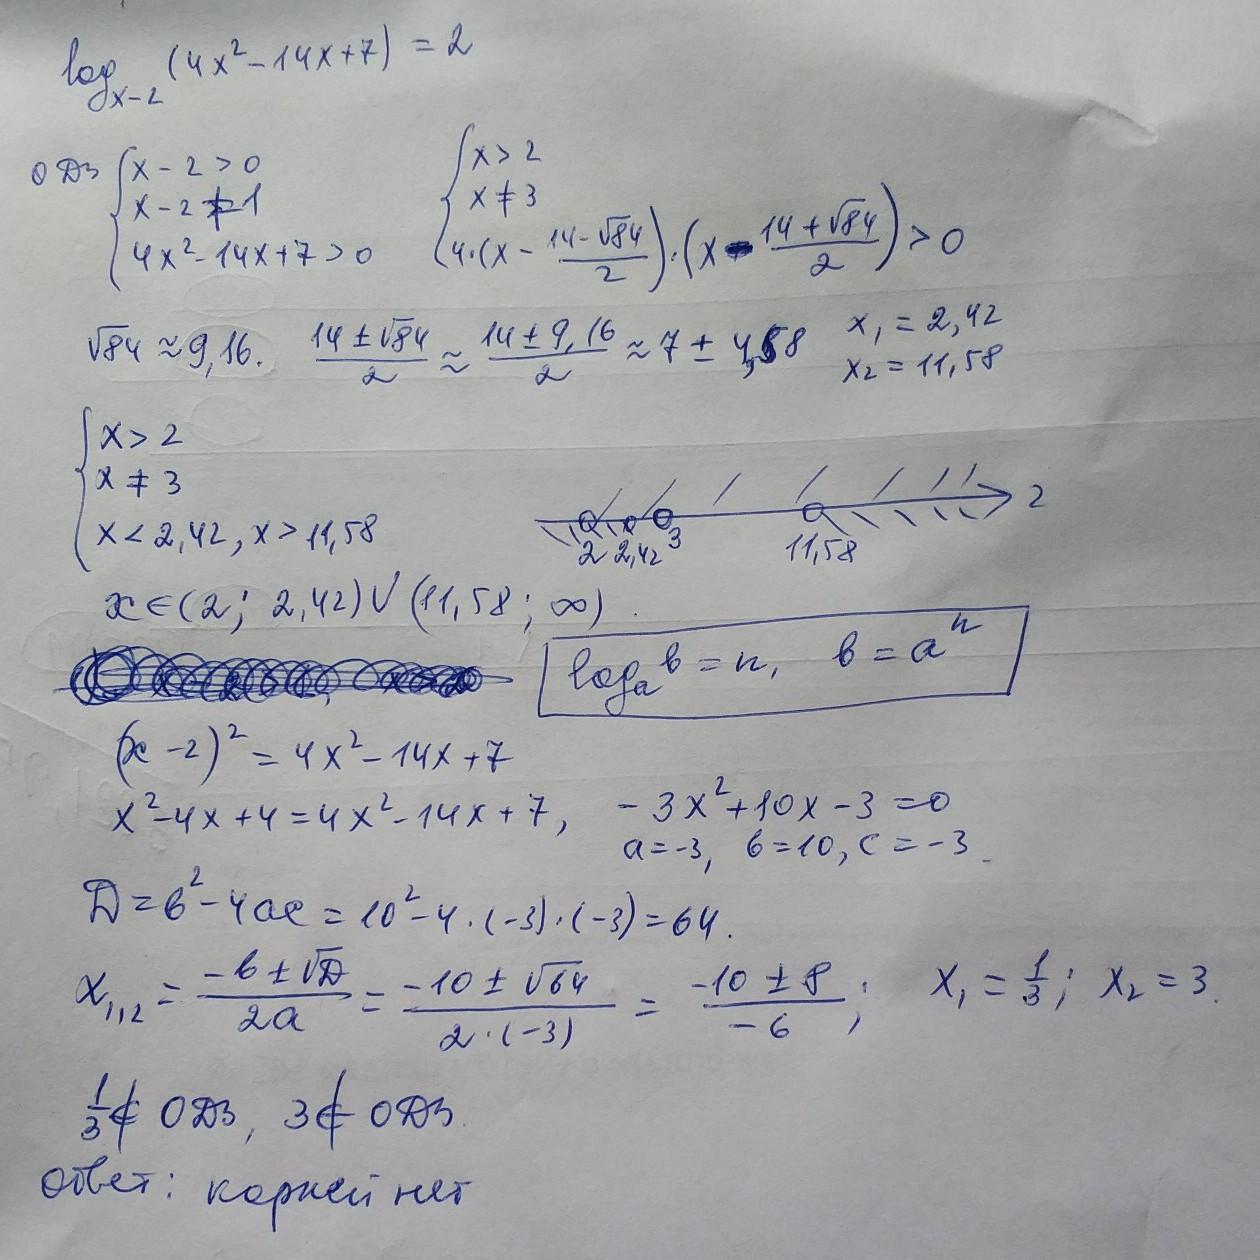 log_{x-2} (4x² - 14x + 7) = 2
ОДЗ { x - 2 > 0 { x > 2
x - 2 ≠ 1 x ≠ 3
4x² - 14x + 7 > 0 4·(x - (14 - √84)/2)·(x - (14 + √84)/2) > 0
√84 ≈ 9,16. (14 ± √84)/2 ≈ (14 ± 9,16)/2 ≈ 7 ± 4,58 x₁ = 2,42
x₂ = 11,58
{ x > 2
x ≠ 3
x < 2,42, x > 11,58
2 2,42 3 11,58 2
x ∈ (2; 2,42) ∪ (11,58; ∞).
log_a b = n, b = aⁿ
(x - 2)² = 4x² - 14x + 7
x² - 4x + 4 = 4x² - 14x + 7, -3x² + 10x - 3 = 0
a = -3, b = 10, c = -3.
D = b² - 4ac = 10² - 4·(-3)·(-3) = 64.
x₁,₂ = (-b ± √D)/2a = (-10 ± √64)/(2·(-3)) = (-10 ± 8)/(-6); x₁ = 1/3; x₂ = 3.
1/3 ∉ ОДЗ, 3 ∉ ОДЗ.
ответ: корней нет